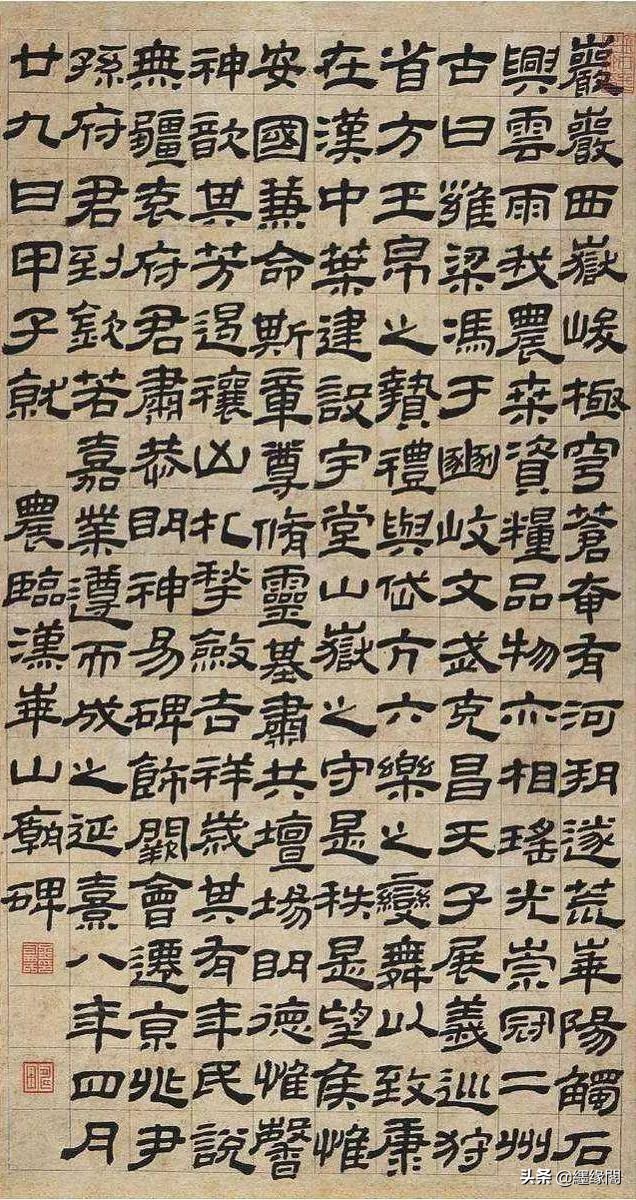 巖巖西嶽峻極穹蒼奄有河朔遂荒崋陽觸石
興雲雨我農桒資糧品物亦相瑤光崇冠二州
古曰雍梁馮于豳岐文武克昌天子展義巡狩
省方玉帛之贄禮與岱亢六樂之變舞以致康
在漢中葉建設宇堂山嶽之守是秩是望侯惟
安國兼命斯章尊脩靈基肅共壇場明德惟馨
神歆其芳遏禳凶札揫斂吉祥歲其有年民說
無疆袁府君肅恭明神易碑飾闕會遷京兆尹
孫府君到欽若嘉業遵而成之延熹八年四月
廿九日甲子就 農臨漢崋山廟碑
头条